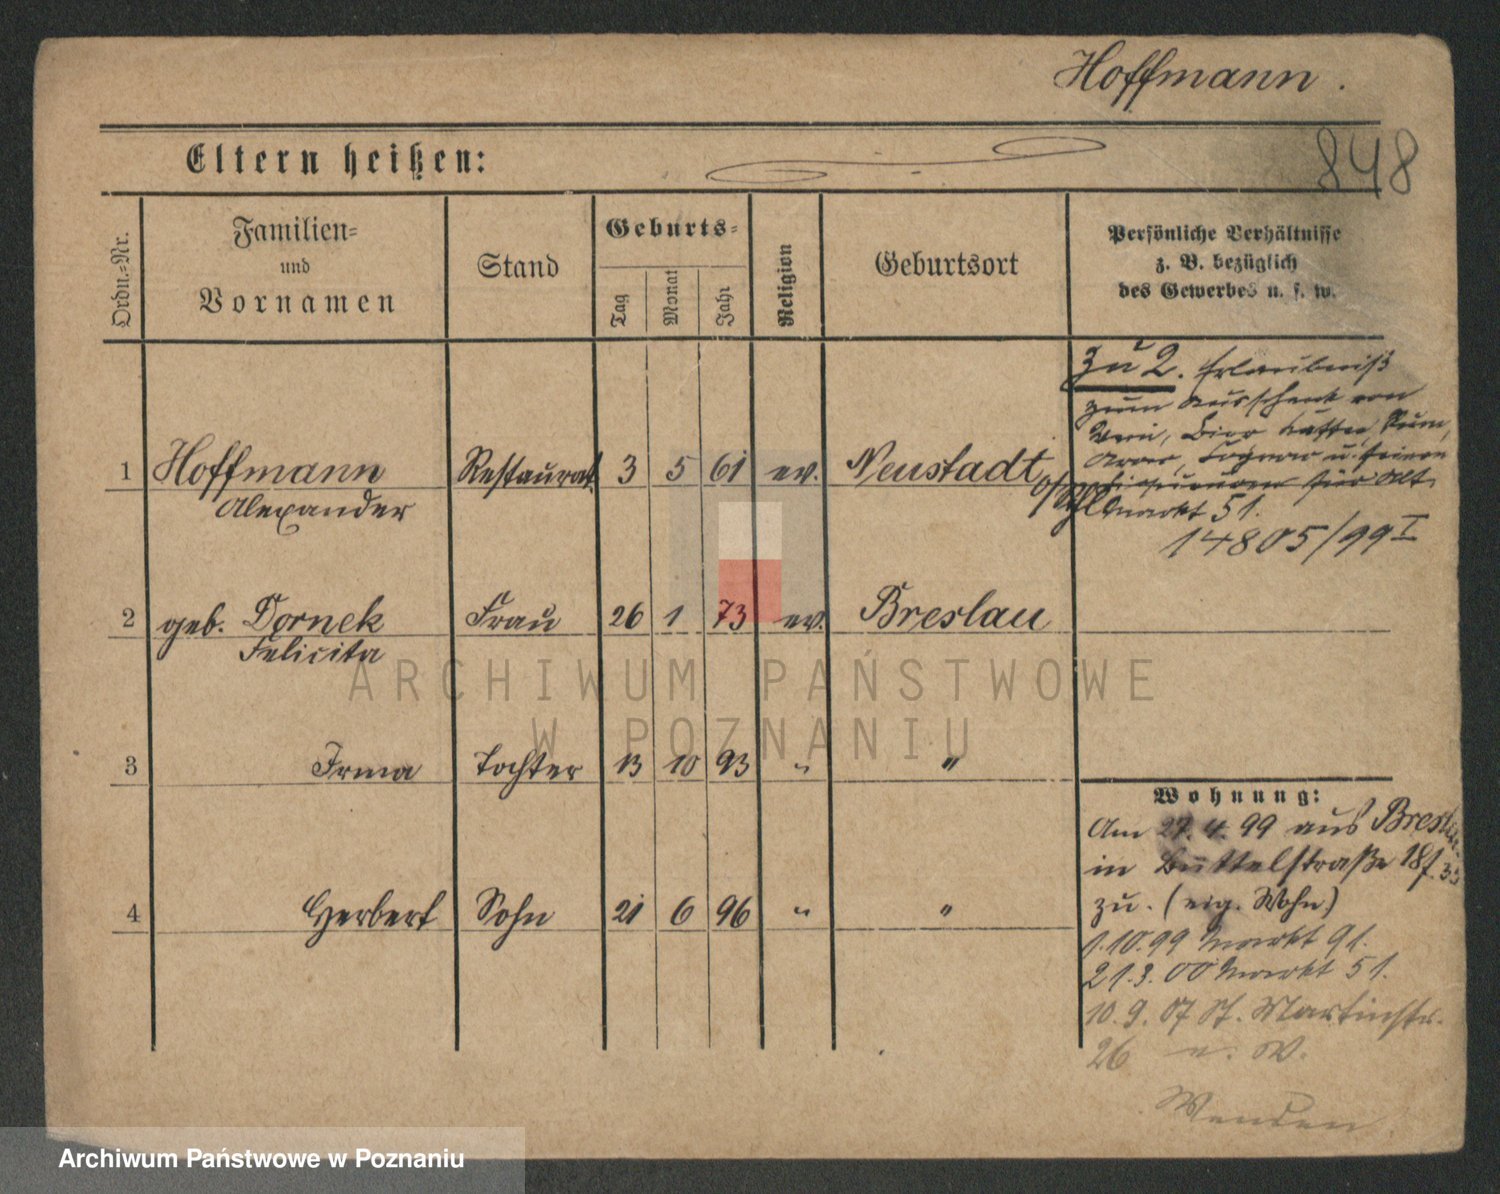 Hoffmann.
848
Eltern heißen:
Ordn.=Nr.
Familien=
und
Vornamen
Stand
Geburts=
Tag
Monat
Jahr
Religion
Geburtsort
Persönliche Verhältnisse
z. B. bezüglich
des Gewerbes u. s. w.
1 Hoffmann Restaurat. 3 5 61 ev. Neustadt
Alexander
o/Schl
2 geb. Dornek Frau 26 1 73 ev. Breslau
Felicita
3 Irma Tochter 13 10 93 " "
4 Herbert Sohn 21 6 96 " "
Zu 2. Erlaubniß
zum Ausschank von
Wein, Bier, Kaffee, Rum,
Arac, Cognac u. feinen
für Alt
markt 51.
14805/99 I
Wohnung:
Am 27.4.99 aus Breslau
in Büttelstraße 18 f.
zu. (eig. Wohn)
1.10.99 Markt 91.
21.3.00 Markt 51.
10.9.07 St. Martinstr.
26 W.
Wenden
ARCHIWUM PAŃSTWOWE
W POZNANIU
Archiwum Państwowe w Poznaniu